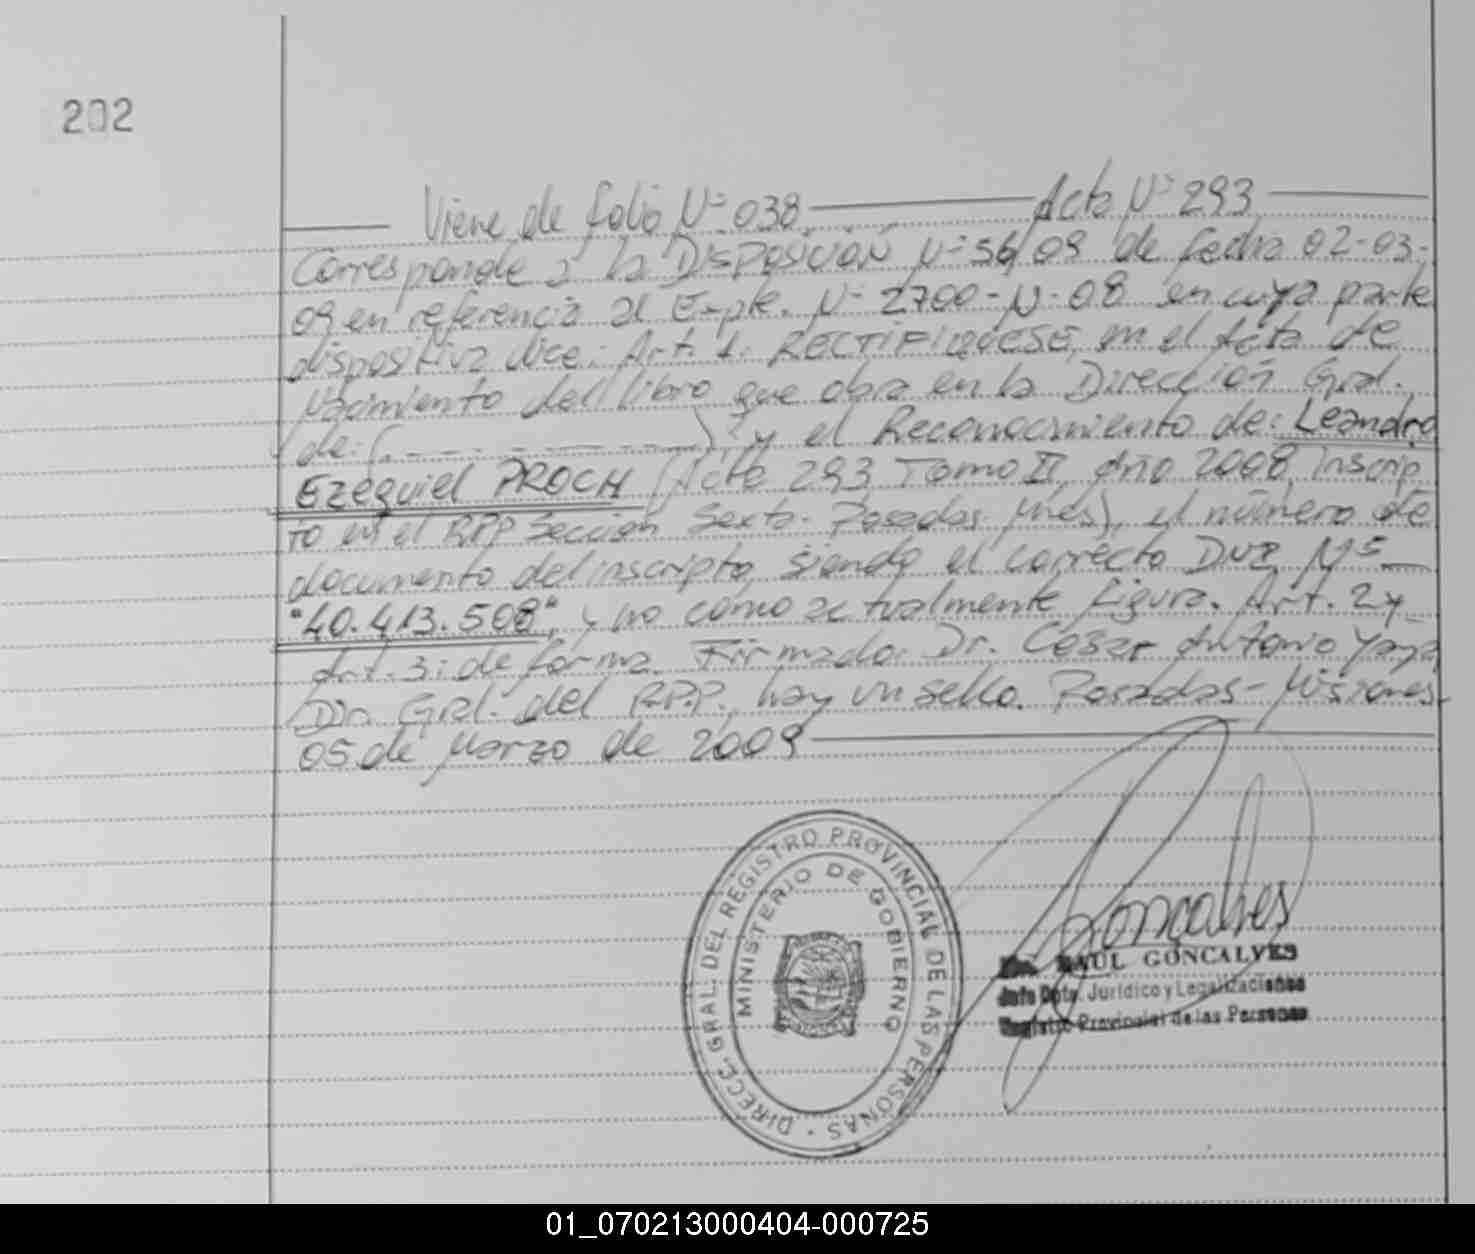 202
Viene de folio Nº 038 Acta Nº 293
Corresponde a la DISPOSICIÓN Nº 56/09 de fecha 02-03-
09 en referencia al Expte. Nº 2700-N-08 en cuya parte
dispositiva dice: Art. 1: RECTIFIQUESE, en el Acta de
Nacimiento del libro que obra en la Dirección Gral.
de: (. - - - - - - - - - -) y el Reconocimiento de: Leandro
Ezequiel PROCH (Acta 293 Tomo II, Año 2008, inscrip
to en el RPP Sección Sexta. Posadas Mnes), el número de
documento del inscripto, siendo el correcto DNI Nº
"40.413.508", y no como actualmente figura. Art. 2 y
Art. 3: de forma. Firmado: Dr. César Antonio Yaya
Dir. Gral. del R.P.P., hay un sello. Posadas - Misiones.
05 de Marzo de 2009
DIRECC. GRAL. DEL REGISTRO PROVINCIAL DE LAS PERSONAS
MINISTERIO DE GOBIERNO
Goncalves
RAUL GONCALVES
Jefe Dpto. Jurídico y Legalizaciones
Registro Provincial de las Personas
01_070213000404-000725